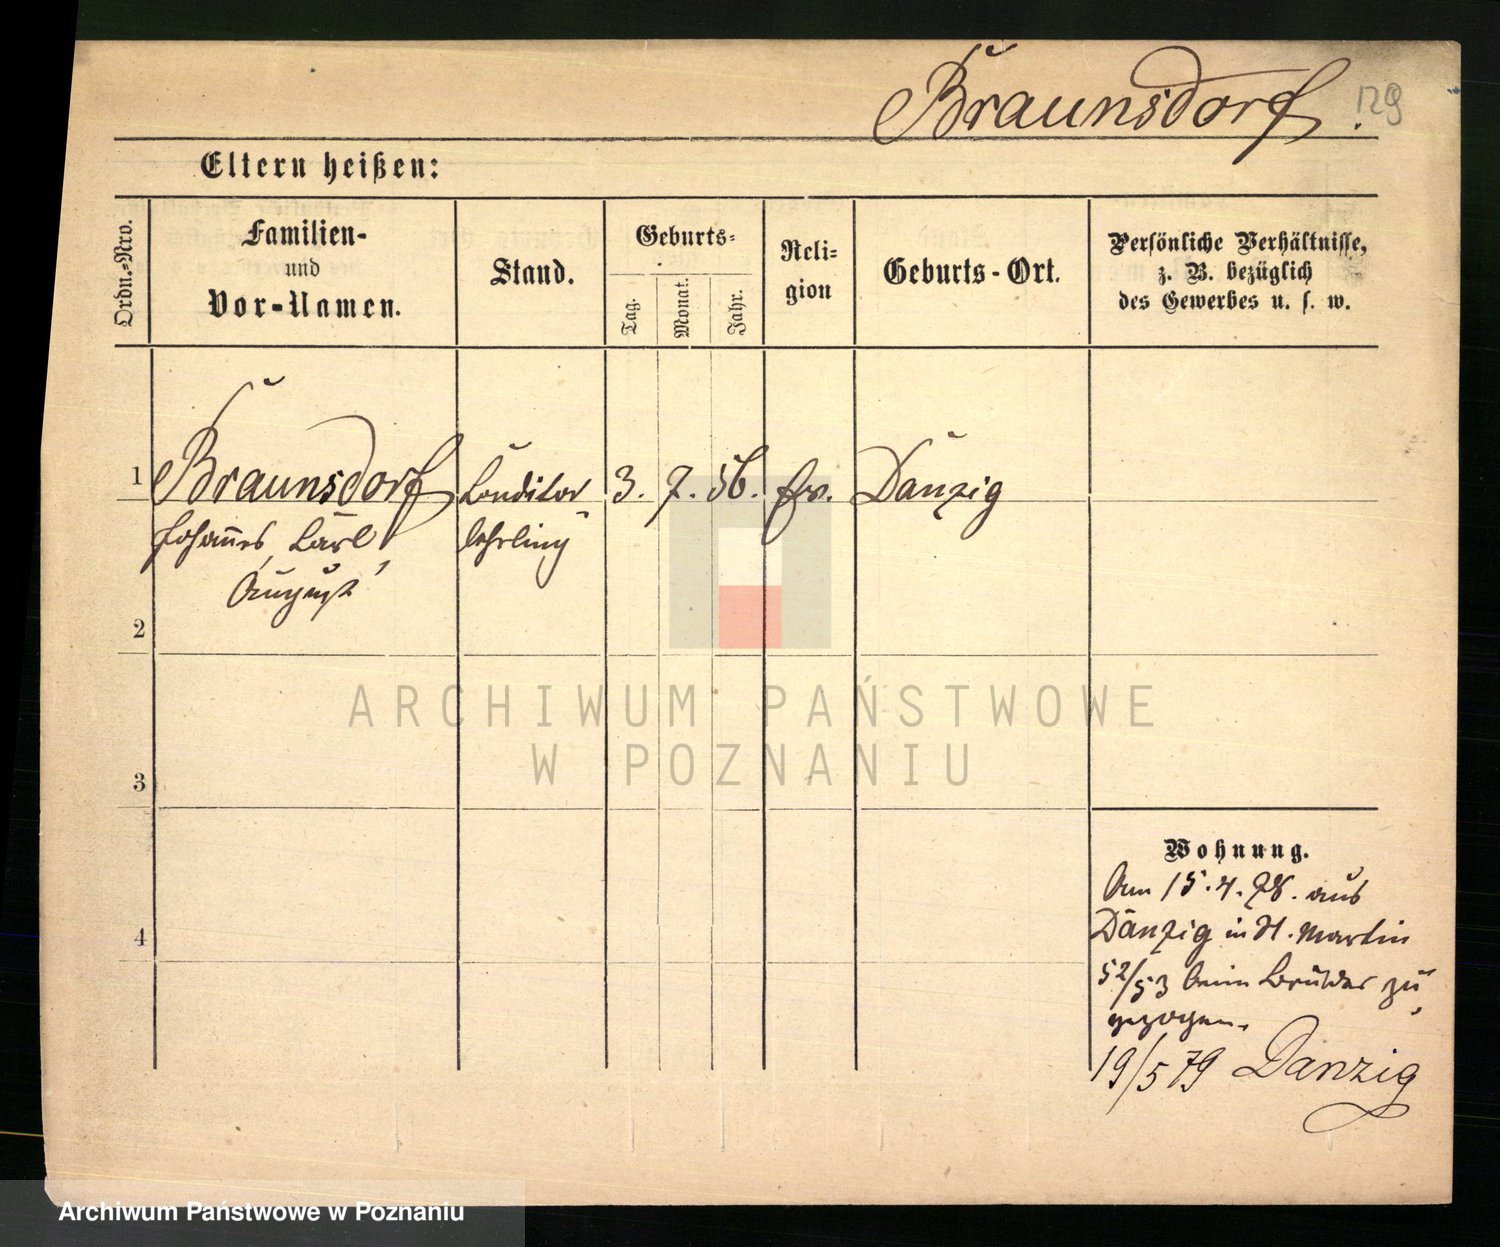 Braunsdorf.
129
Eltern heißen:
Ordn.-Nro.
Familien-
und
Vor-Namen.
Stand.
Geburts-
Tag.
Monat.
Jahr.
Reli-
gion
Geburts-Ort.
Persönliche Verhältnisse,
z. B. bezüglich
des Gewerbes u. s. w.
1
Braunsdorf
Conditor
3. 7. 56.
ev.
Danzig
Johannes, Carl
lehrling
August
2
ARCHIWUM PAŃSTWOWE
W POZNANIU
3
Wohnung.
Am 15.4.78. aus
Danzig in St. Martin
4
52/53 beim Bruder zu
gezogen.
19/5 79 Danzig
Archiwum Państwowe w Poznaniu